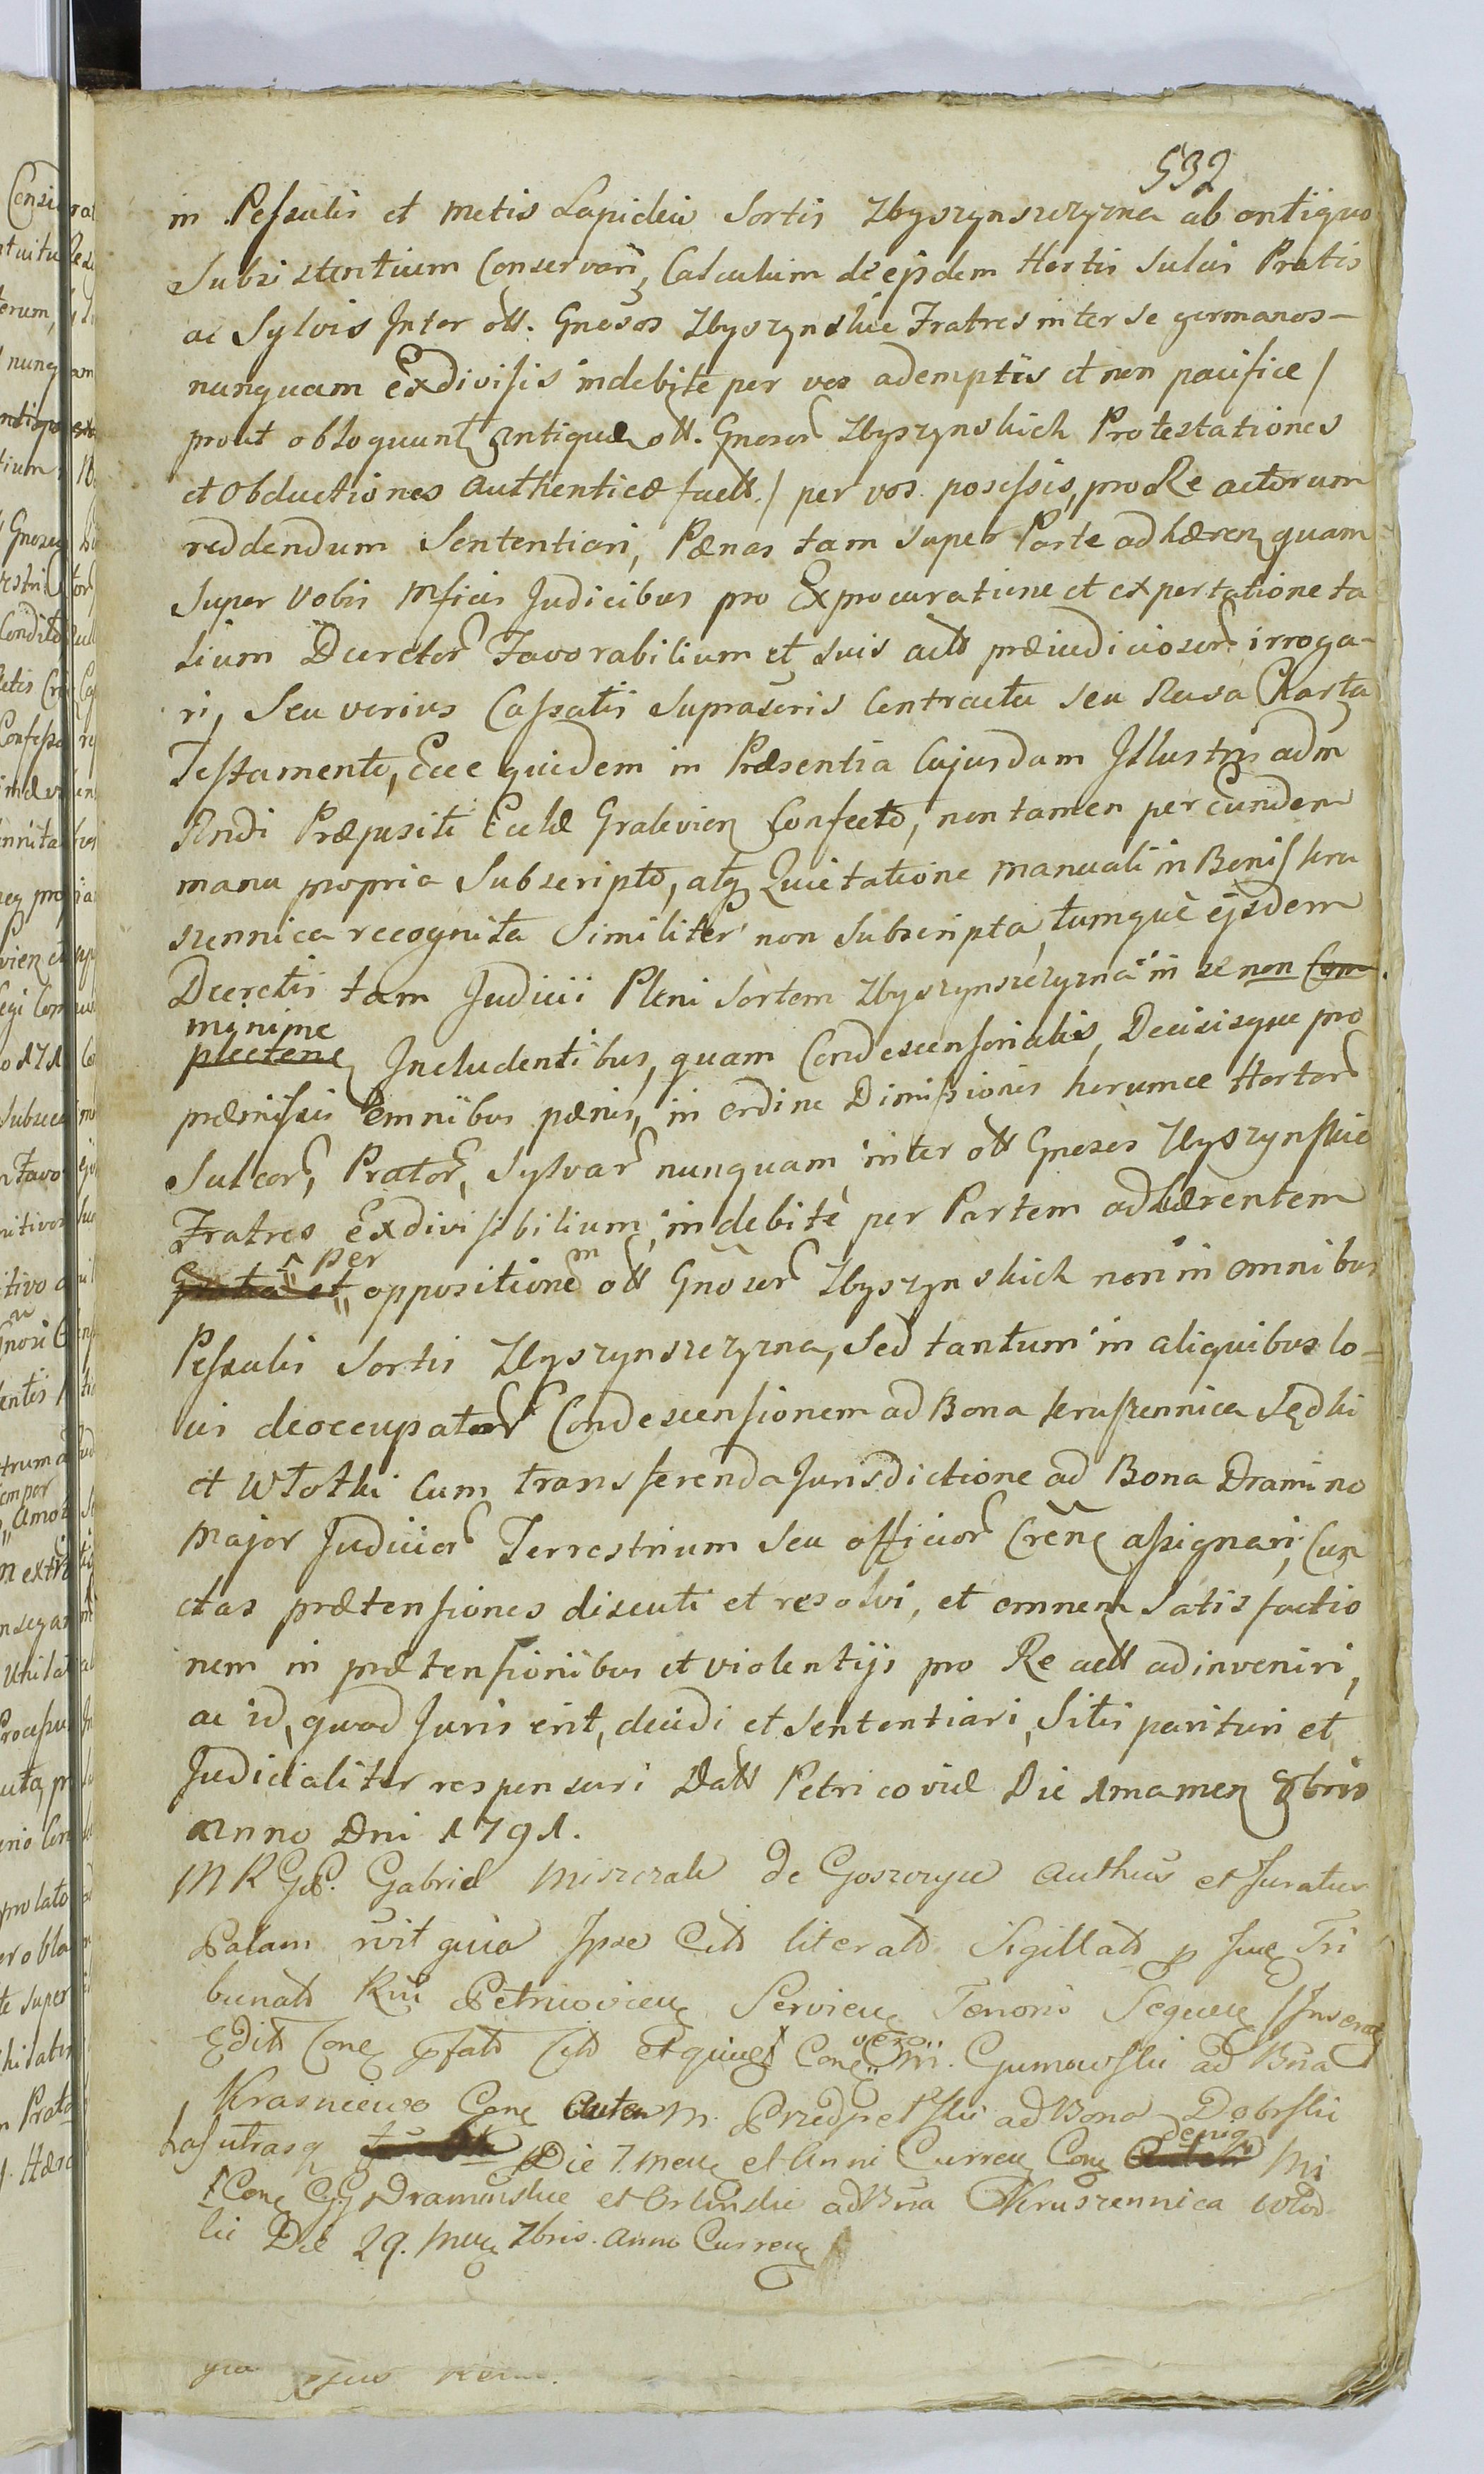 532
in Pessulis et metis Lapideis Sortis Zbyszynszczyzna ab antiquo
Subsistentium Conservari, Calculum de ejsdem Hortis Sulcis Pratis
ac Sylvis Inter ott. Gnosos Zbyszynskie Fratres inter se germanos –
nunquam Exdivisis indebite per vos ademptis et non pacifice /
prout obloquunt antiquæ ott. Gnosor Zbyszynskich Protestationes
et Obductiones authenticæ factt. / per vos possessis, pro Re actorum
reddendum Sententiari, Pænas tam super Parte adhæren quam
super Vobis Mficis Judicibus pro Exprocuratione et expertatione ta
lium Decretor Favorabilium et suis actt præiudiciosor irroga-
ri, Seu verius Cassatis supraseris Contractu seu Rasa Charta
Testamento, Ecce quidem in Præsentia Cujusdam Illustris adm
Rndi Præpositi Ecclæ Gralevien Confecto, non tamen per Eundem
manu propria Subscripto, atq Quietatione manuali in Bonis Kru
szennica recognita Similiter non Subscripta, tumque ejsdem
Decretis tam Judicii Pleni sortem Zbyszynszczyzna in se non Com
minime
plecten Includentibus, quam Condescensorialis, Decisisque pro
præmissis omnibus pænis, in ordine Dimissionis horumce Hortor
Sulcor, Prator, Sylvar nunquam inter ott Gnosos Zbyszynskie
Fratres Exdivisibilium, indebite per Partem adhærentem
per
et oppositionem ott Gnosor Zbyszynskich non in omnibus
Pessulis Sortis Zbyszynszczyzna, sed tantum in aliquibus lo=
cis deoccupator Condescensionem ad Bona Kruszennica Sędki
et Wtotki Cum transferenda Jurisdictione ad Bona Dramino
Major Judicior Terrestrium seu officior Crenc assignari, Cun
ctas prætensiones discuti et resolvi, et omnem Satisfactio
nem in prætensionibus et violentijs pro Re actt adinveniri,
ac id, quod Juris erit, decidi et sententiari, Sitis parituri et
Judicialiter responsuri Datt Petricoviæ Die 1ma men 8bris
Anno Dni 1791.
MRGP. Gabriel Miszczak de Goszczyce Authus et Juratus
Palam rvit quia Ipse Citt literatt Sigillatt p Juc Tri
bunatt Rni Petricovien Servien Tenoris Sequen Inseren
Edit Conc pfatt Citt et quidē Conc vero M. Gumowski ad Bna
Krasniewo Conc autem M. Przedpełski ad Bona Dobrski
Lasutrasq Die 7. men et Anni Curren Conc deniq M
Conc GG Draminskie et Orlinskie ad Bna Kruszennica Wlod
ki Die 29. men 7bris. Anno Curren